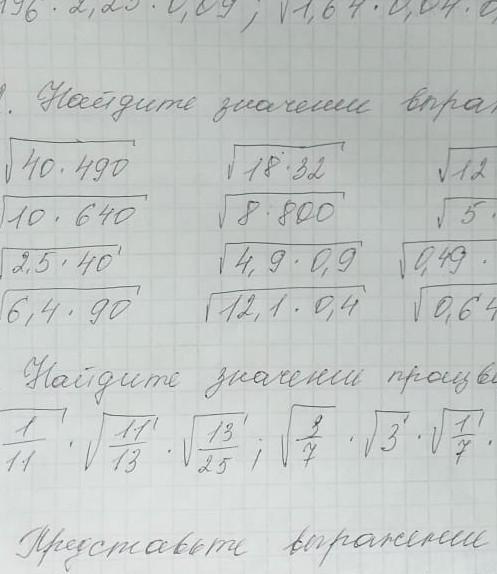 196 · 2,25 · 0,09 ; √1,64 · 0,04 ·
. Найдите значении выра
√40 · 490 √18 · 32 √12
√10 · 640 √8 · 800 √5 ·
√2,5 · 40 √4,9 · 0,9 √0,49 ·
√6,4 · 90 √12,1 · 0,4 √0,64
Найдите значении произве
1/11 · √11/13 · √13/25 ; √3/7 · √3 · √1/7 .
Представьте выражении